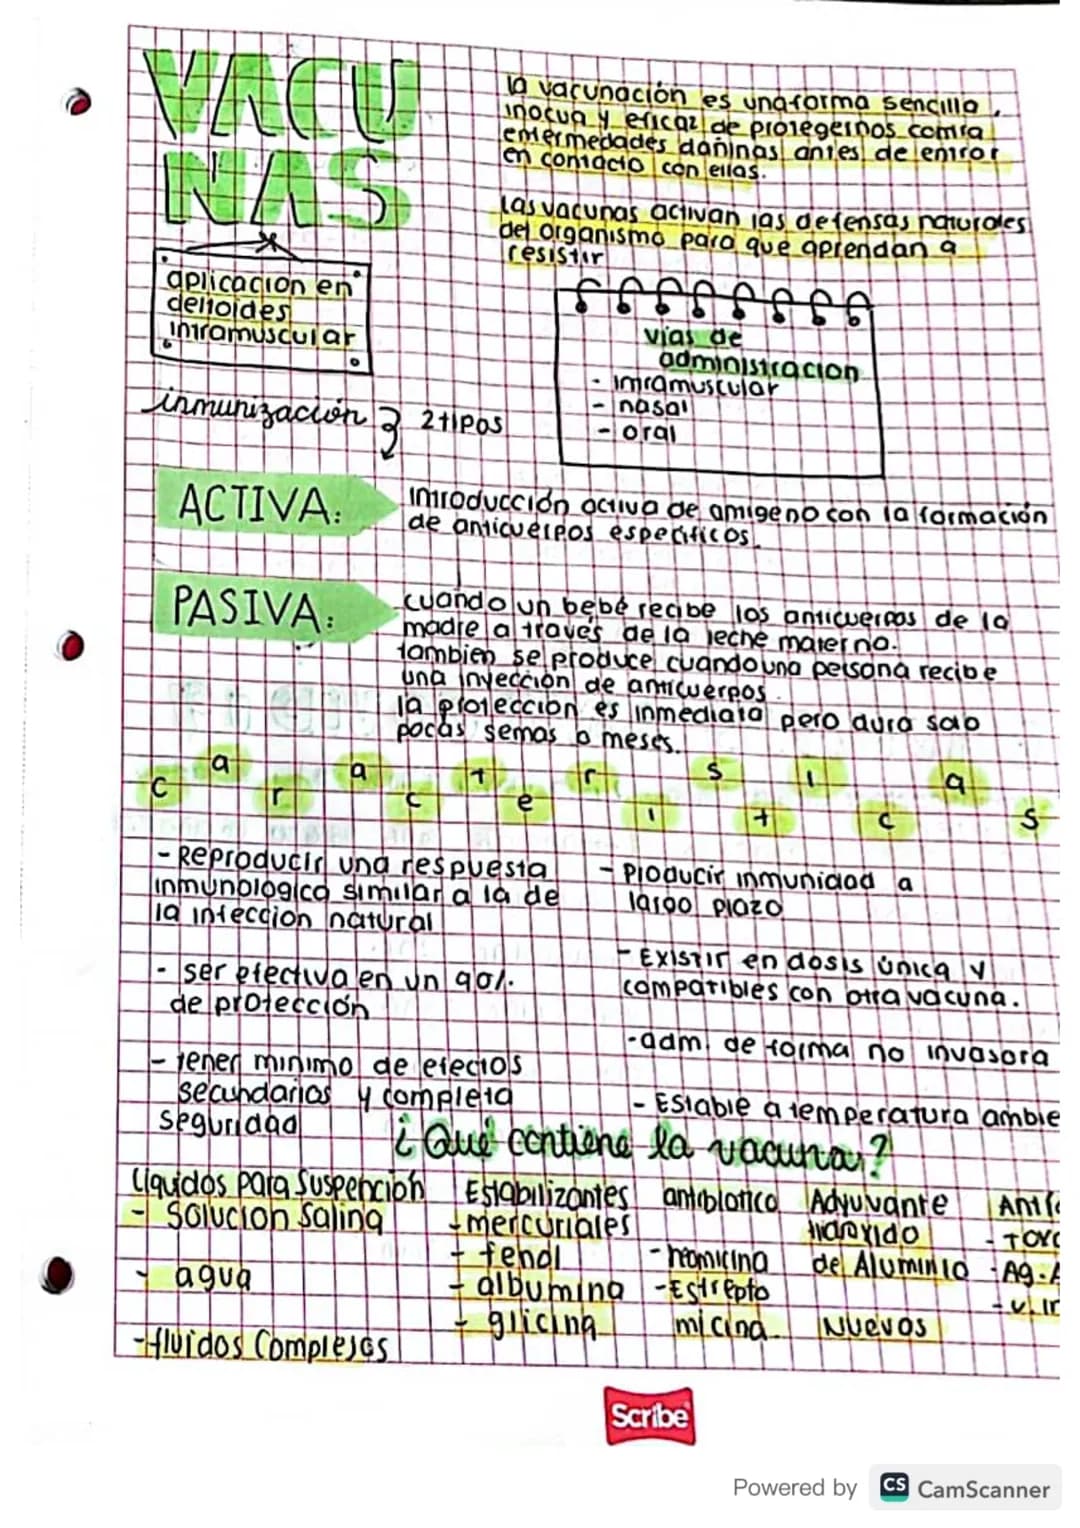 VACU
NAS
la vacunación es una forma sencilla,
inocua y eficaz de protegernos contra
enfermedades dañinas antes de entrar
en contacto con ellas.
Las vacunas activan las defensas naturales
del organismo para que aprendan a
resistir
aplicacion en
deltoides
intramuscular
vias de
administracion
- intramuscular
- nasal
- oral
inmunización } 2 tipos
ACTIVA:
introducción activa de antigeno con la formación
de anticuerpos especificos.
PASIVA:
cuando un bebé recibe los anticuerpos de la
madre a través de la leche materna.
tambien se produce cuando una persona recibe
una inyección de anticuerpos.
la protección es inmediata pero dura solo
pocas semas o meses.
Caracteristicas
- Reproducir una respuesta
inmunologica similar a la de
la infeccion natural
- ser efectiva en un 90%.
de protección
- tener minimo de efectos
secundarios y completa
seguridad
- Producir inmunidad a
largo plazo
- Existir en dosis única y
compatibles con otra vacuna.
- adm. de forma no invasora
- Estable a temperatura ambie
¿Qué contiene la vacuna?
Liquidos para Suspención
- Solucion Salina
- agua
- fluidos Complejos
Estabilizantes
- mercuriales
- fenol
- albumina
- glicina
antibiotico
- neomicina
- Estrepto
micina
Adyuvante
hidroxido
de Aluminio
Nuevos
- Ag.
Scribe
Powered by CS CamScanner